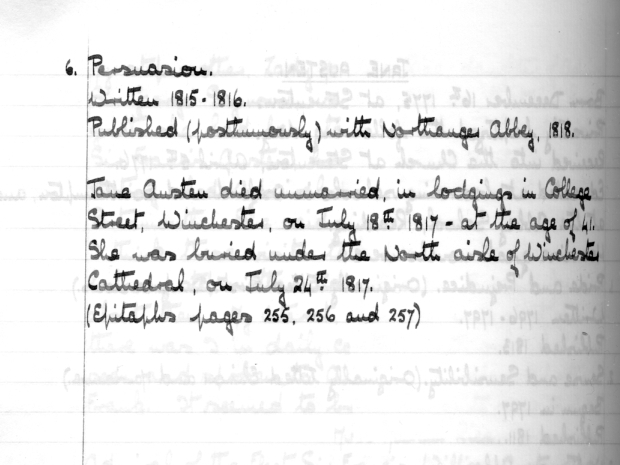 6. Persuasion.
Written 1815-1816.
Published (posthumously) with Northanger Abbey, 1818.
Jane Austen died unmarried, in lodgings in College
Street, Winchester, on July 18th 1817 - at the age of 41.
She was buried under the North aisle of Winchester
Cathedral, on July 24th 1817.
(Epitaphs pages 255, 256 and 257)